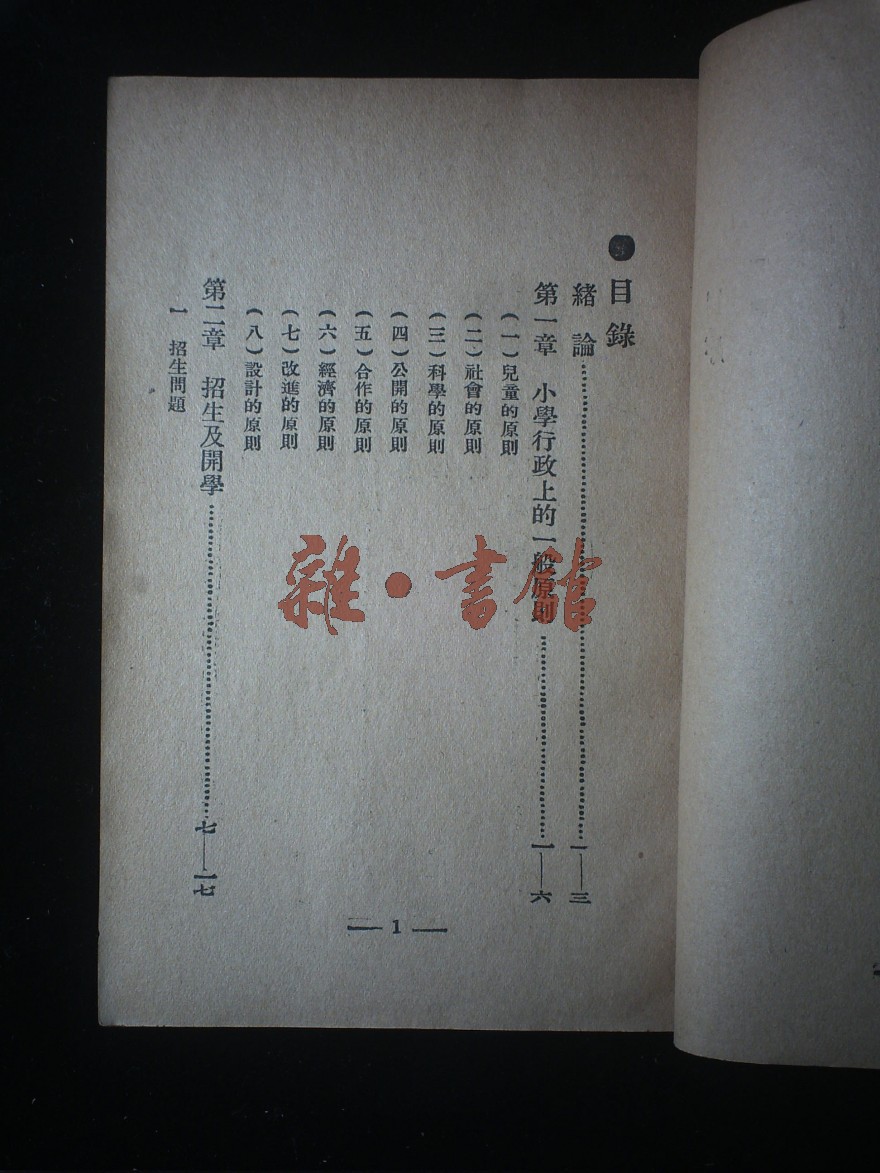 目錄
緒論……一—三
第一章　小學行政上的一般原則……一—六
(一)兒童的原則
(二)社會的原則
(三)科學的原則
(四)公開的原則
(五)合作的原則
(六)經濟的原則
(七)改進的原則
(八)設計的原則
第二章　招生及開學……七—一七
一　招生問題
— 1 —
雜·書館